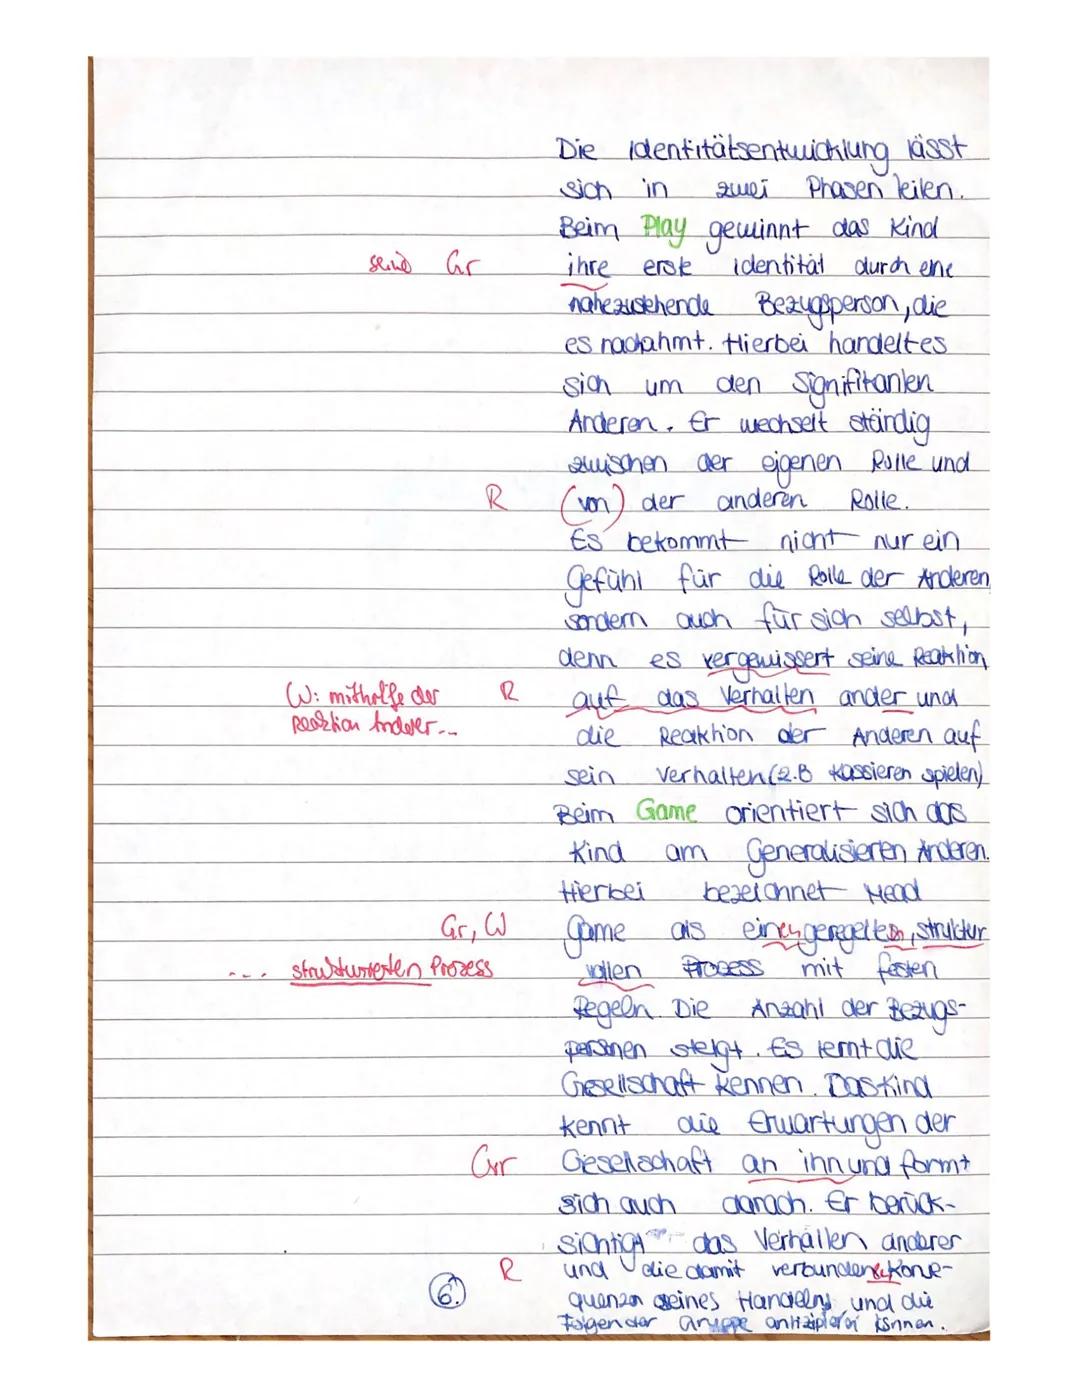 Die Identitätsentwicklung lässt
sich in zwei Phasen teilen.
Beim Play gewinnt das Kind
seine Gr ihre erste identität durch eine
nahezustehende Bezugsperson, die
es nachahmt. Hierbei handelt es
sich um den Signifikanten
Anderen. Er wechselt ständig
zwischen der eigenen Rolle und
R (von) der anderen Rolle.
Es bekommt nicht nur ein
Gefühl für die Rolle der Anderen,
sondern auch für sich selbst,
denn es vergewissert seine Reaktion
W: mithilfe der R auf das Verhalten ander und
Reaktion Anderer... die Reaktion der Anderen auf
sein Verhalten (z.B Kassieren spielen)
Beim Game orientiert sich das
Kind am Generalisierten Anderen.
Hierbei bezeichnet Mead
Gr, W Game als einen geregelten, struktur
.... strukturierten Prozess vollen Prozess mit festen
Regeln. Die Anzahl der Bezugs-
personen steigt. Es lernt die
Gesellschaft kennen. Das Kind
kennt die Erwartungen der
Gr Gesellschaft an ihn und formt
sich auch danach. Er berück-
sichtigt das Verhalten anderer
R und die damit verbundene Konse-
6. quenzen seines Handelns, und die
Folgen der Gruppe antizipieren können.